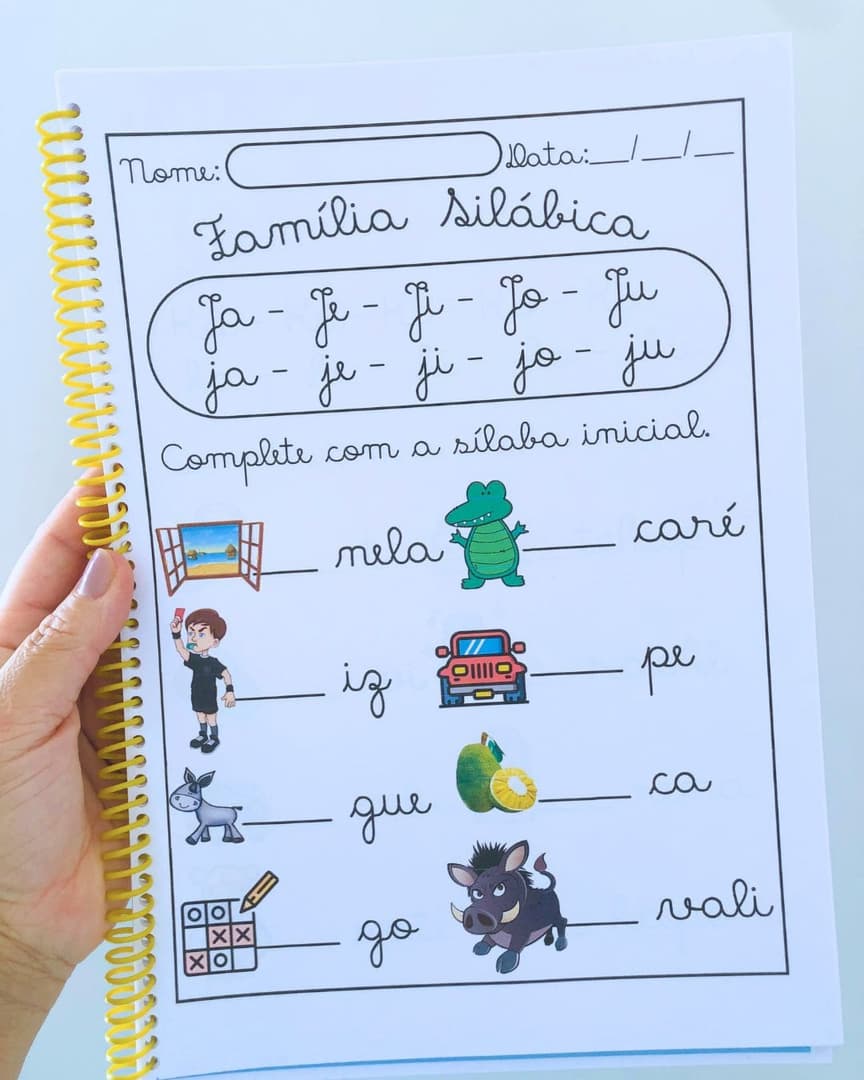 Nome: Data:__/__/__
Família Silábica
Ja - Je - Ji - Jo - Ju
ja - je - ji - jo - ju
Complete com a sílaba inicial.
____ nela ____ caré
____ iz ____ pe
____ gue ____ ca
____ go ____ vali